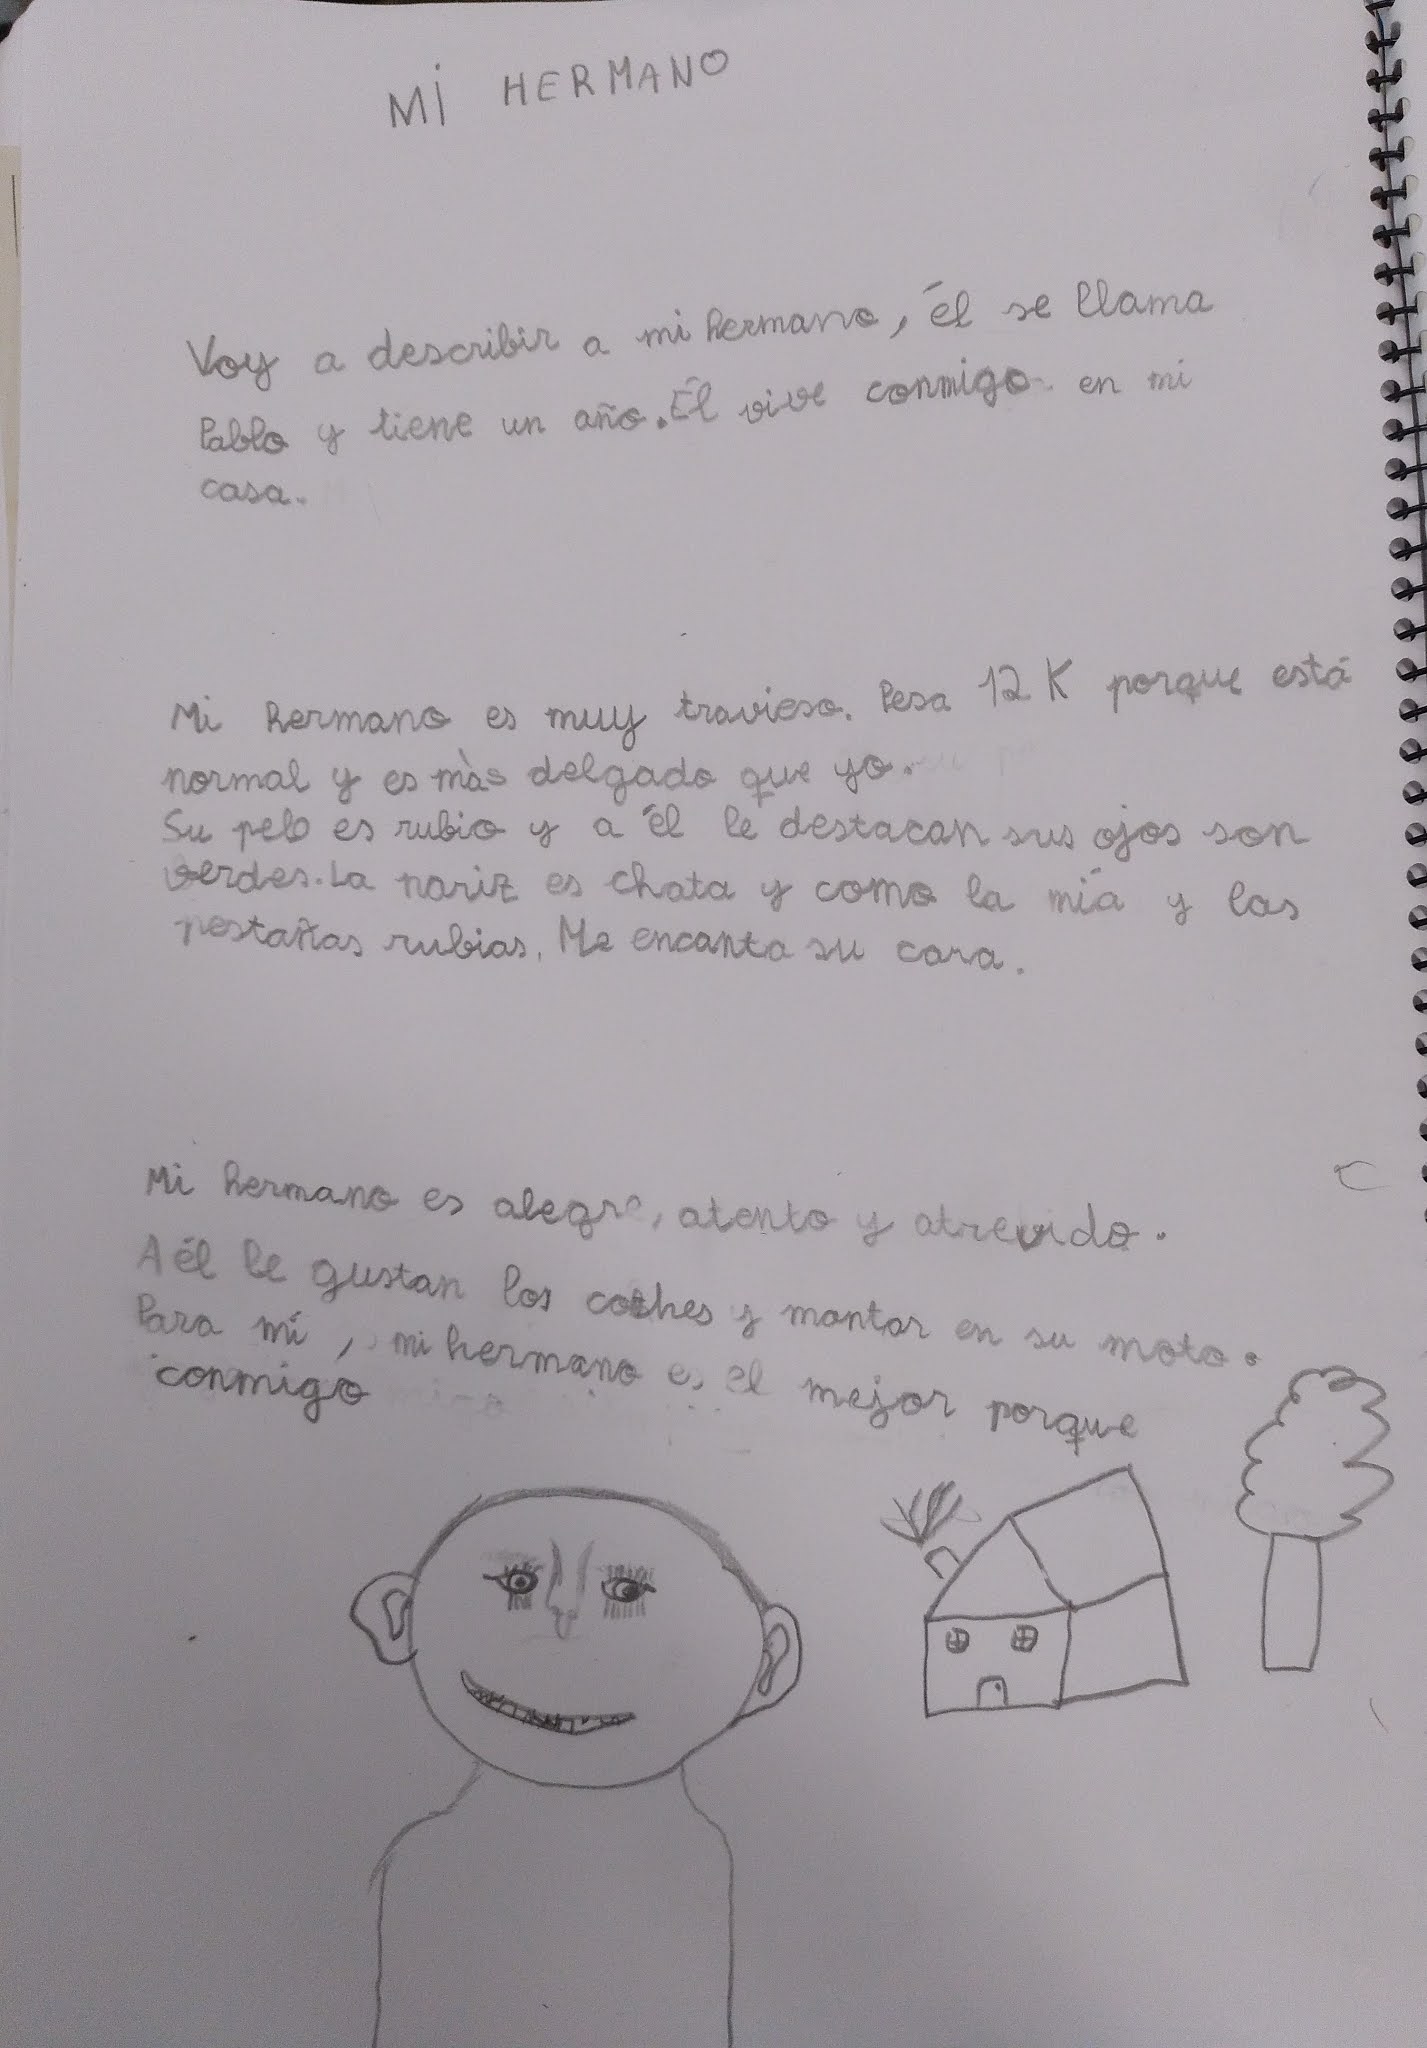 MI HERMANO
Voy a describir a mi hermano, él se llama
Pablo y tiene un año. Él vive conmigo en mi
casa.
Mi hermano es muy travieso. Pesa 12 K porque está
normal y es màs delgado que yo.
Su pelo es rubio y a él le destacan sus ojos son
verdes. La nariz es chata y como la mía y las
pestañas rubias. Me encanta su cara.
Mi hermano es alegre, atento y atrevido.
A él le gustan los coches y montar en su moto.
Para mí, mi hermano es el mejor porque
conmigo